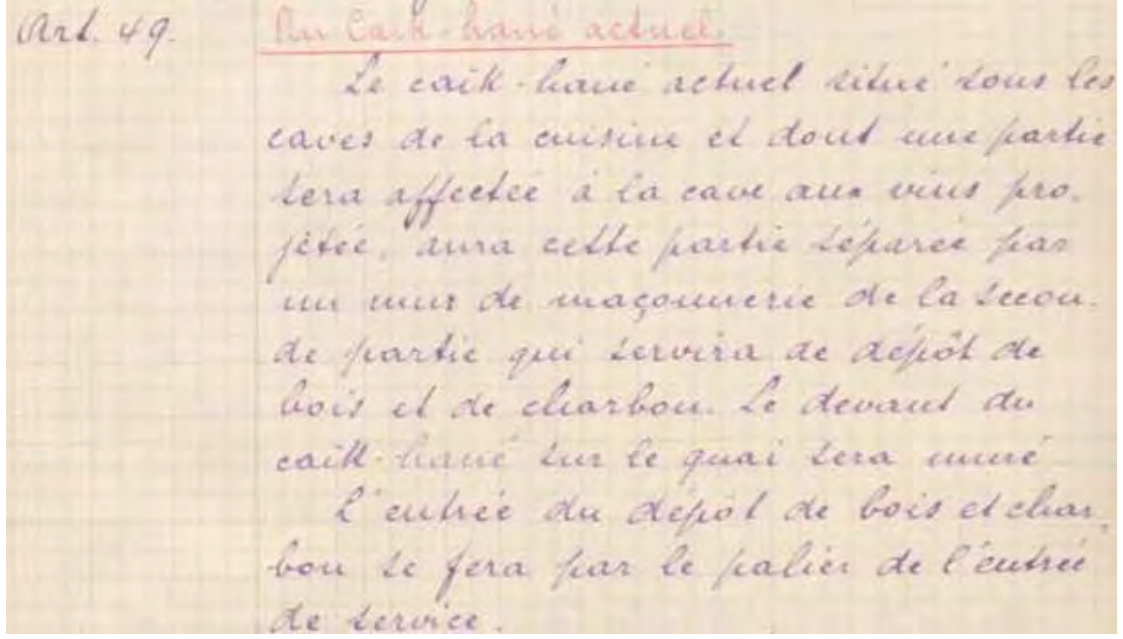 Art. 49. Du Caïk-hané actuel.
Le caïk-hané actuel situé sous les
caves de la cuisine et dont une partie
sera affectée à la cave aux vins pro-
jétée, aura cette partie séparée par
un mur de maçonnerie de la secon-
de partie qui servira de dépôt de
bois et de charbon. Le devant du
caïk-hané sur le quai sera muré
L'entrée du dépôt de bois et char-
bon se fera par le palier de l'entrée
de service.